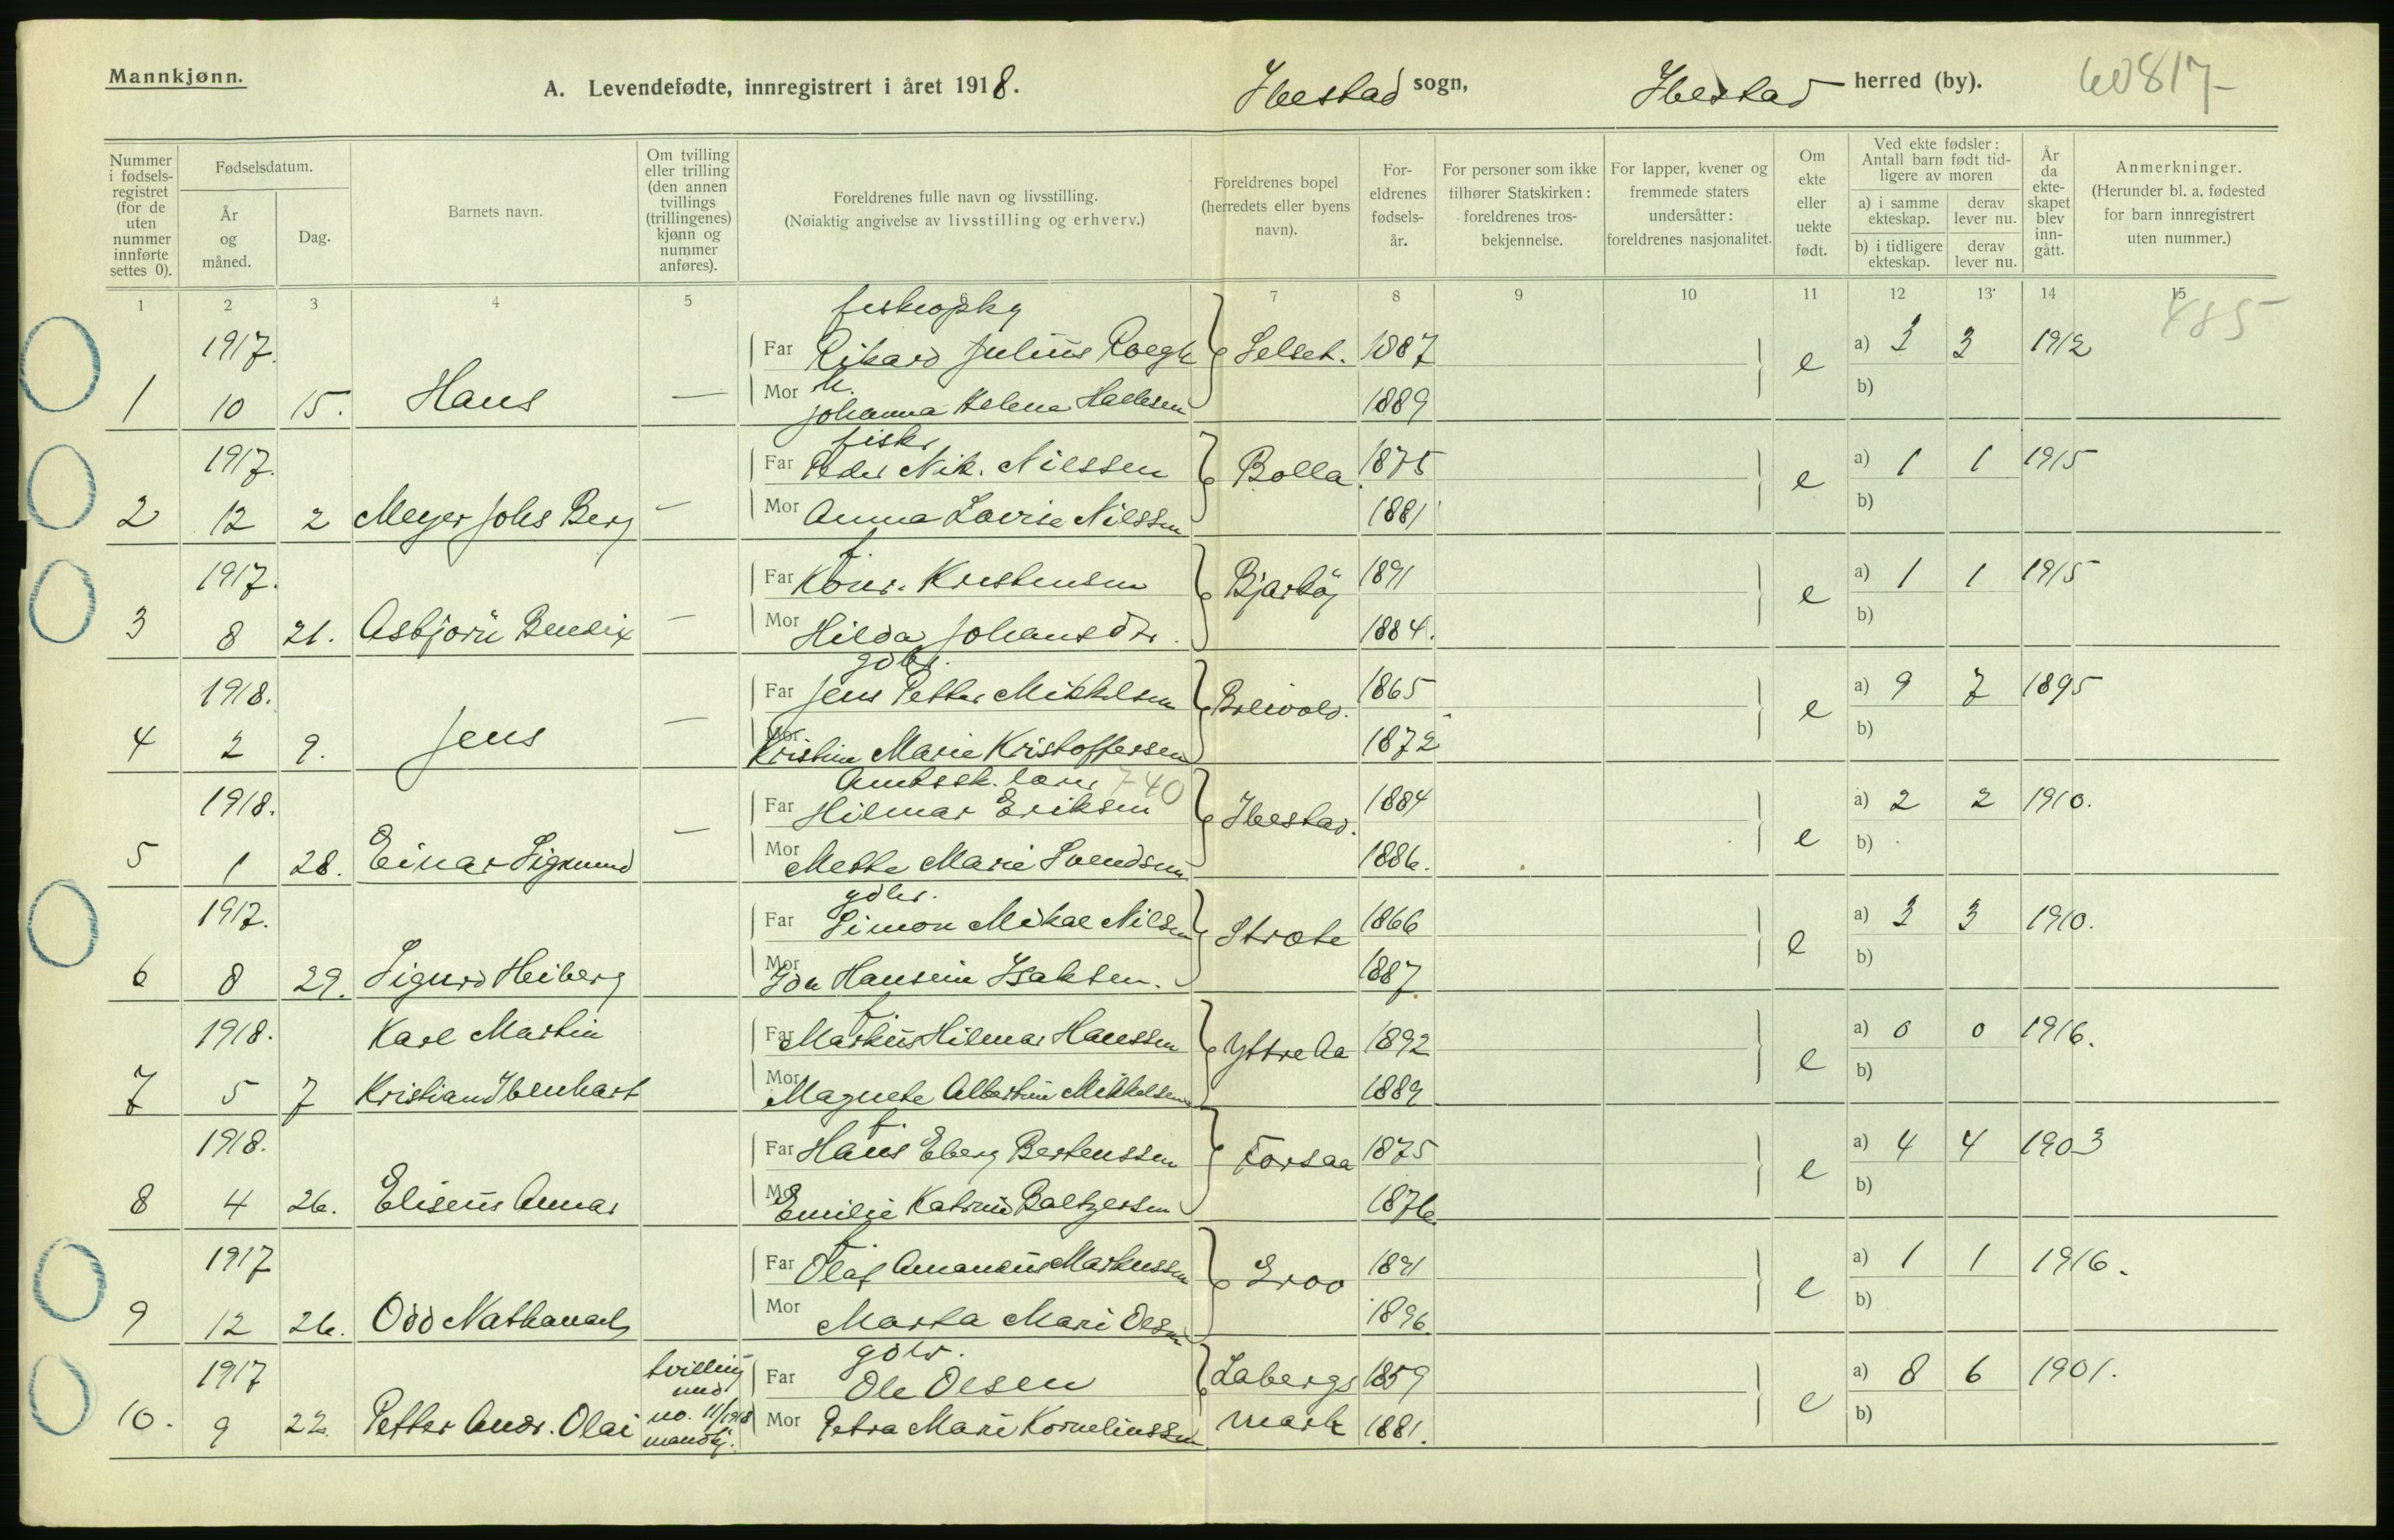 Mannkjønn.
A. Levendefødte, innregistrert i året 1918.
Ibestad sogn,
Ibestad herred (by).
60817-
Nummer i fødselsregistret (for de uten nummer innførte settes 0).
Fødselsdatum.
År og måned.
Dag.
Barnets navn.
Om tvilling eller trilling (den annen tvillings (trillingenes) kjønn og nummer anføres).
Foreldrenes fulle navn og livsstilling.
(Nøiaktig angivelse av livsstilling og erhverv.)
Foreldrenes bopel (herredets eller byens navn).
Foreldrenes fødselsår.
For personer som ikke tilhører Statskirken: foreldrenes trosbekjennelse.
For lapper, kvener og fremmede staters undersåtter: foreldrenes nasjonalitet.
Om ekte eller uekte født.
Ved ekte fødsler: Antall barn født tidligere av moren
a) i samme ekteskap.
derav lever nu.
b) i tidligere ekteskap.
derav lever nu.
År da ekteskapet blev inngått.
Anmerkninger.
(Herunder bl. a. fødested for barn innregistrert uten nummer.)
1 2 3 4 5 7 8 9 10 11 12 13 14 15
485
1917.
Far Rikard Julius Roegh Selset. 1887 e a) 3 3 1912
1 10 15. Hans — Mor Johanna Helena 1889 b)
fisker
1917. Far Peder Nik. Nilssen Bolla 1875 e a) 1 1 1915
2 12 2 Meyer Johs Berg — Mor Anna Lovise Nilssen 1881 b)
f.
1917. Far Konr. Kristensen Bjarkøy 1891 e a) 1 1 1915
3 8 21. Asbjørn Bendix — Mor Hilda Johansdtr. 1884. b)
gdbr.
1918. Far Jens Petter Mikkelsen Breivold. 1865 e a) 9 7 1895
4 2 9. Jens — Mor Kristine Marie Kristoffersen 1872 b)
Amtssk. lærer 740
1918. Far Hilmar Eriksen Ibestad. 1884 e a) 2 2 1910.
5 1 28. Einar Sigmund — Mor Mette Marie Svendsen 1886. b)
gdbr.
1917. Far Simon Mikal Nilsen Strate 1866 e a) 3 3 1910.
6 8 29. Sigurd Heiberg Mor Ida Hansine Isaksen. 1887 b)
f.
1918. Karl Martin Far Markus Hilmar Hanssen Yttre Aa 1892 e a) 0 0 1916.
7 5 7 Kristian Ibenhart Mor Magnete Albertine Mikkelsen 1889 b)
f.
1918. Far Hans Eberg Bertenssen Forsaa 1875 e a) 4 4 1903
8 4 26. Eliseus Annar Mor Emilie Katrine Baltzersen 1876 b)
f
1917 Far Olaf Amandus Markussen 1891 e a) 1 1 1916.
9 12 26. Odd Nathanael Mor Marta Marie Olsen 1896. b)
gdbr.
1917 tvilling med Far Ole Olsen Labergs 1859 e a) 8 6 1901.
10. 9 22. Petter Andr. Olai no. 11/1918 mandkj. Mor Petra Marie Korneliussen mark 1881. b)